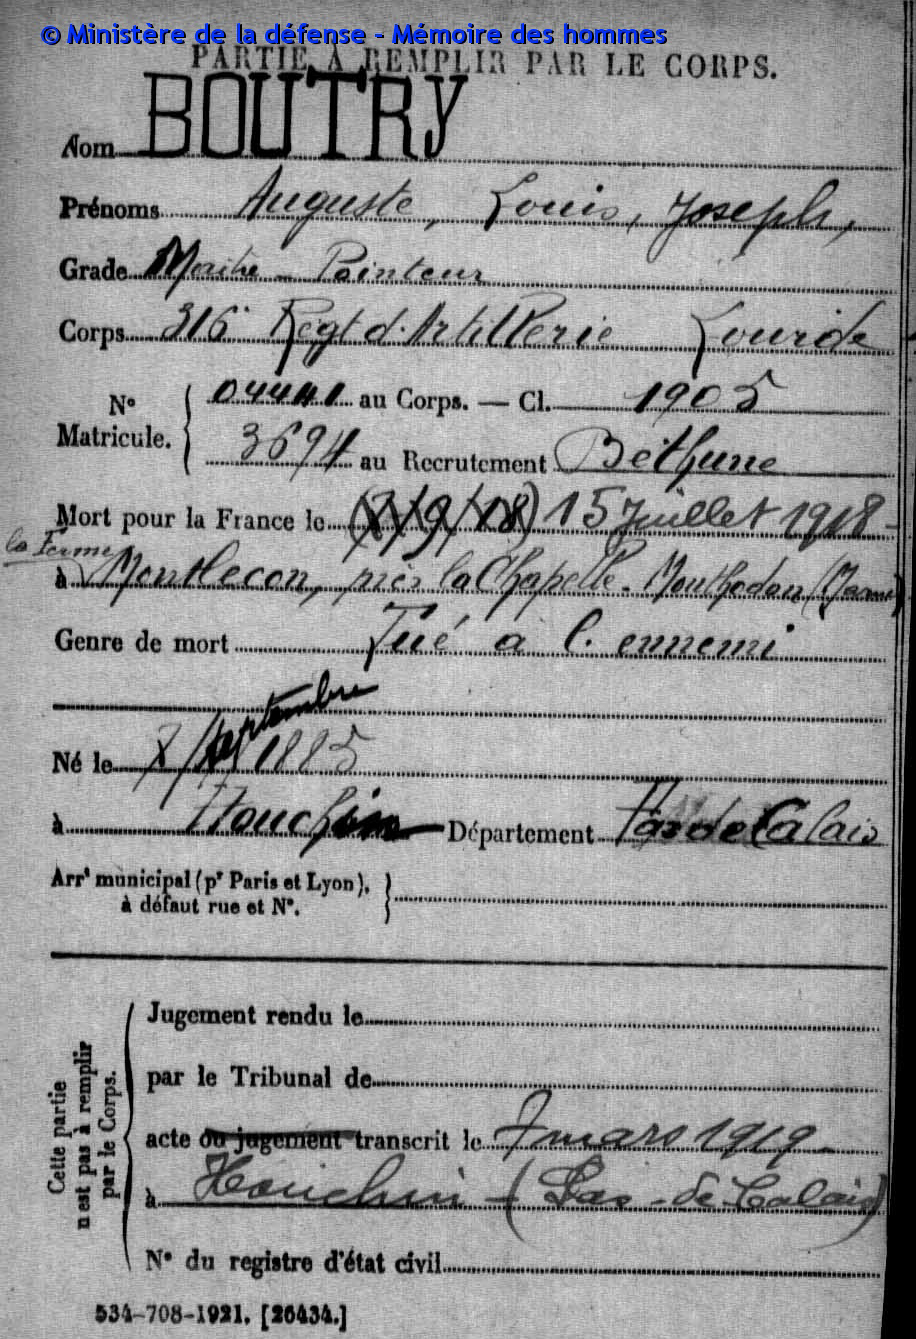 © Ministère de la défense - Mémoire des hommes
PARTIE À REMPLIR PAR LE CORPS.
Nom BOUTRY
Prénoms Auguste, Louis, Joseph,
Grade Maître - Pointeur
Corps 316e Régt d'Artillerie Lourde
N° Matricule. 04441 au Corps. — Cl. 1905
3694 au Recrutement Béthune
Mort pour la France le (8/9/18) 15 Juillet 1918
la Ferme
à Montlecon, près la Chapelle-Monthodon (Marne)
Genre de mort Tué à l'ennemi
septembre
Né le 8 1885
à Houchin Département Pas de Calais
Arrt municipal (pr Paris et Lyon),
à défaut rue et N°.
Cette partie n'est pas à remplir par le Corps.
Jugement rendu le
par le Tribunal de
acte ou jugement transcrit le 7 mars 1919
à Houchin - (Pas-de-Calais)
N° du registre d'état civil
534-708-1921. [26434.]